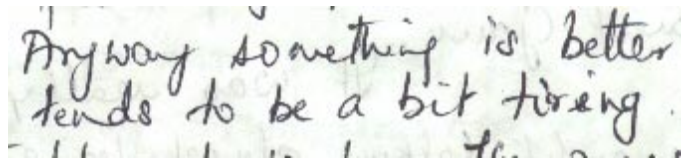 Anyway something is better
tends to be a bit tiring.